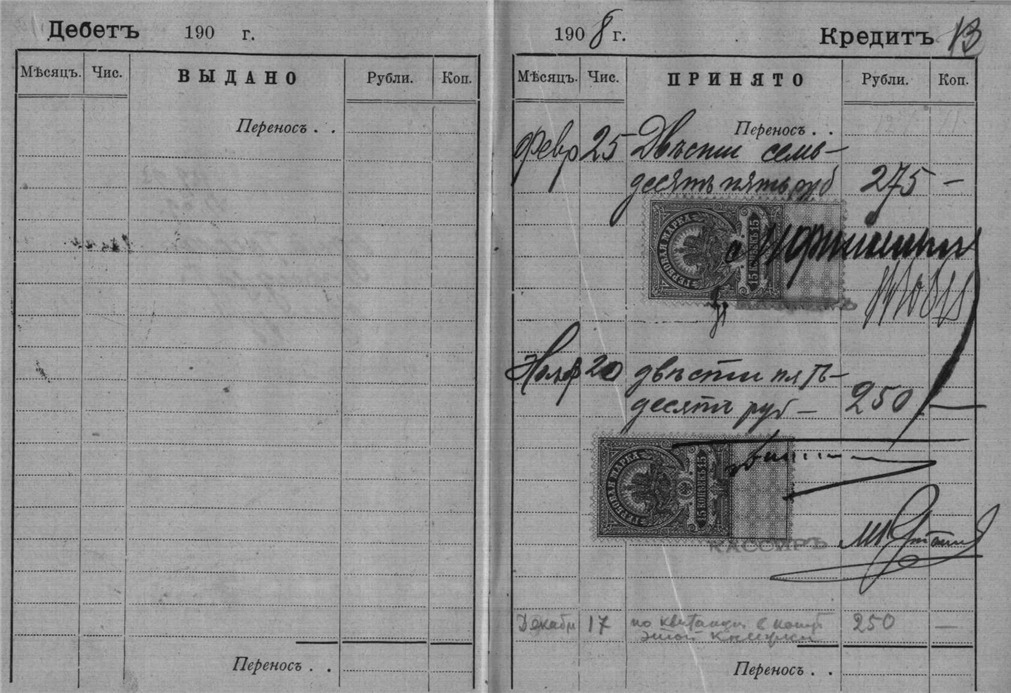 Дебетъ 190 г.
Мѣсяцъ. Чис. ВЫДАНО Рубли. Коп.
Переносъ . .
Переносъ . .
1908 г. Кредитъ 13
Мѣсяцъ. Чис. ПРИНЯТО Рубли. Коп.
Переносъ . .
Февр 25 Двѣсти семь-
десятъ пять руб 275 —
ГЕРБОВАЯ МАРКА
15 КОПѢЕКЪ 15
КАССИРЪ
Нояб 20 двѣсти пять-
десятъ руб — 250 —
ГЕРБОВАЯ МАРКА
15 КОПѢЕКЪ 15
КАССИРЪ
Декабр 17 по квитанціи в
этой 250 —
Переносъ . .